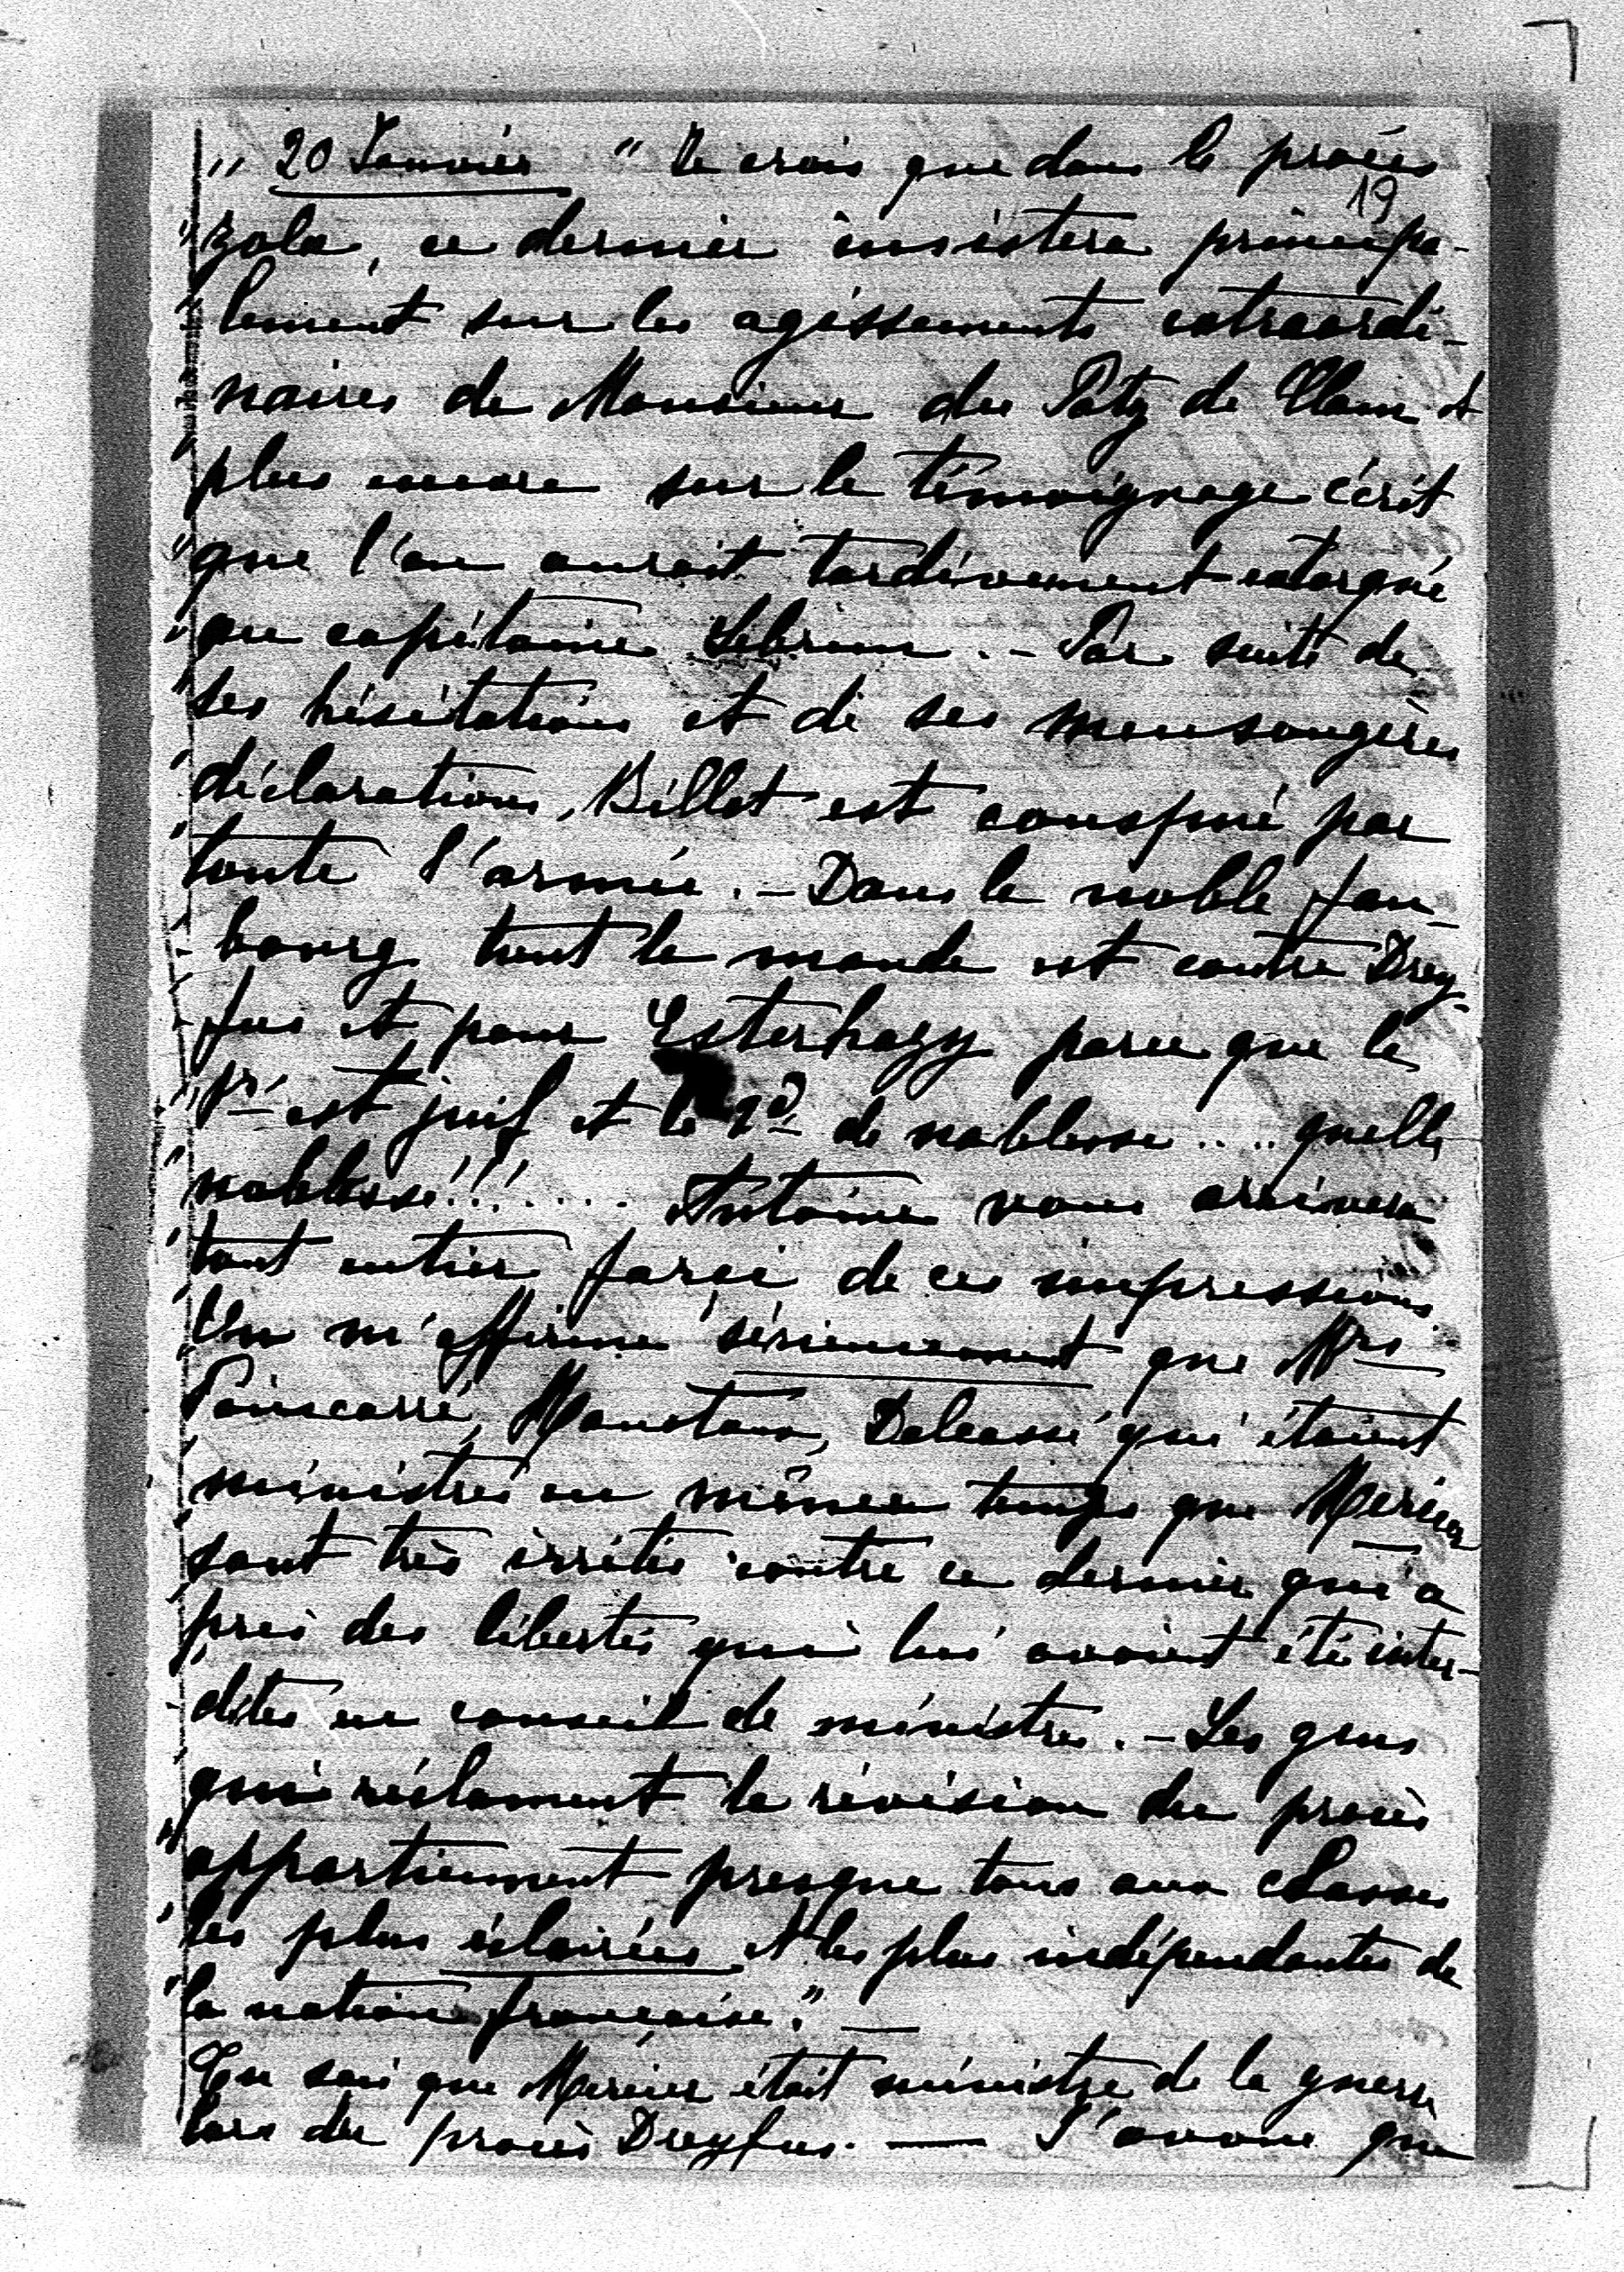 " 20 Janvier " Je crois que dans le procès
19
" Zola, ce dernier insistera principa-
" lement sur les agissements extraordi-
" naires de Monsieur du Paty de Clam et
" plus encore sur le témoignage écrit
" que l'on aurait tardivement extorqué
" au capitaine Lebrun. - Par suite de
" ses hésitations et de ses mensongères
" déclarations, Billot est conspué par
" toute l'armée. - Dans le noble fau-
" bourg tout le monde est contre Drey-
" fus et pour Esterhazy parce que le
" 1er est juif et le 2d de noblesse .... quelle
" noblesse!!! .... Antoine vous arrivera
" tout entier farci de ces impressions.
" On m'affirme sérieusement que Mrs
" Poinscarré, Hanotaux, Delcassé qui étaient
" ministres en même temps que Mercier
" sont très irrités contre ce dernier qui a
" pris des libertés qui lui avaient été inter-
" dites en conseil de ministres. - Les gens
" qui réclament la révision du procès
" appartiennent presque tous aux classes
" les plus éclairées et les plus indépendantes de
" la nation française." —
Tu sais que Mercier était ministre de la guerre
lors du procès Dreyfus. — J'avoue que